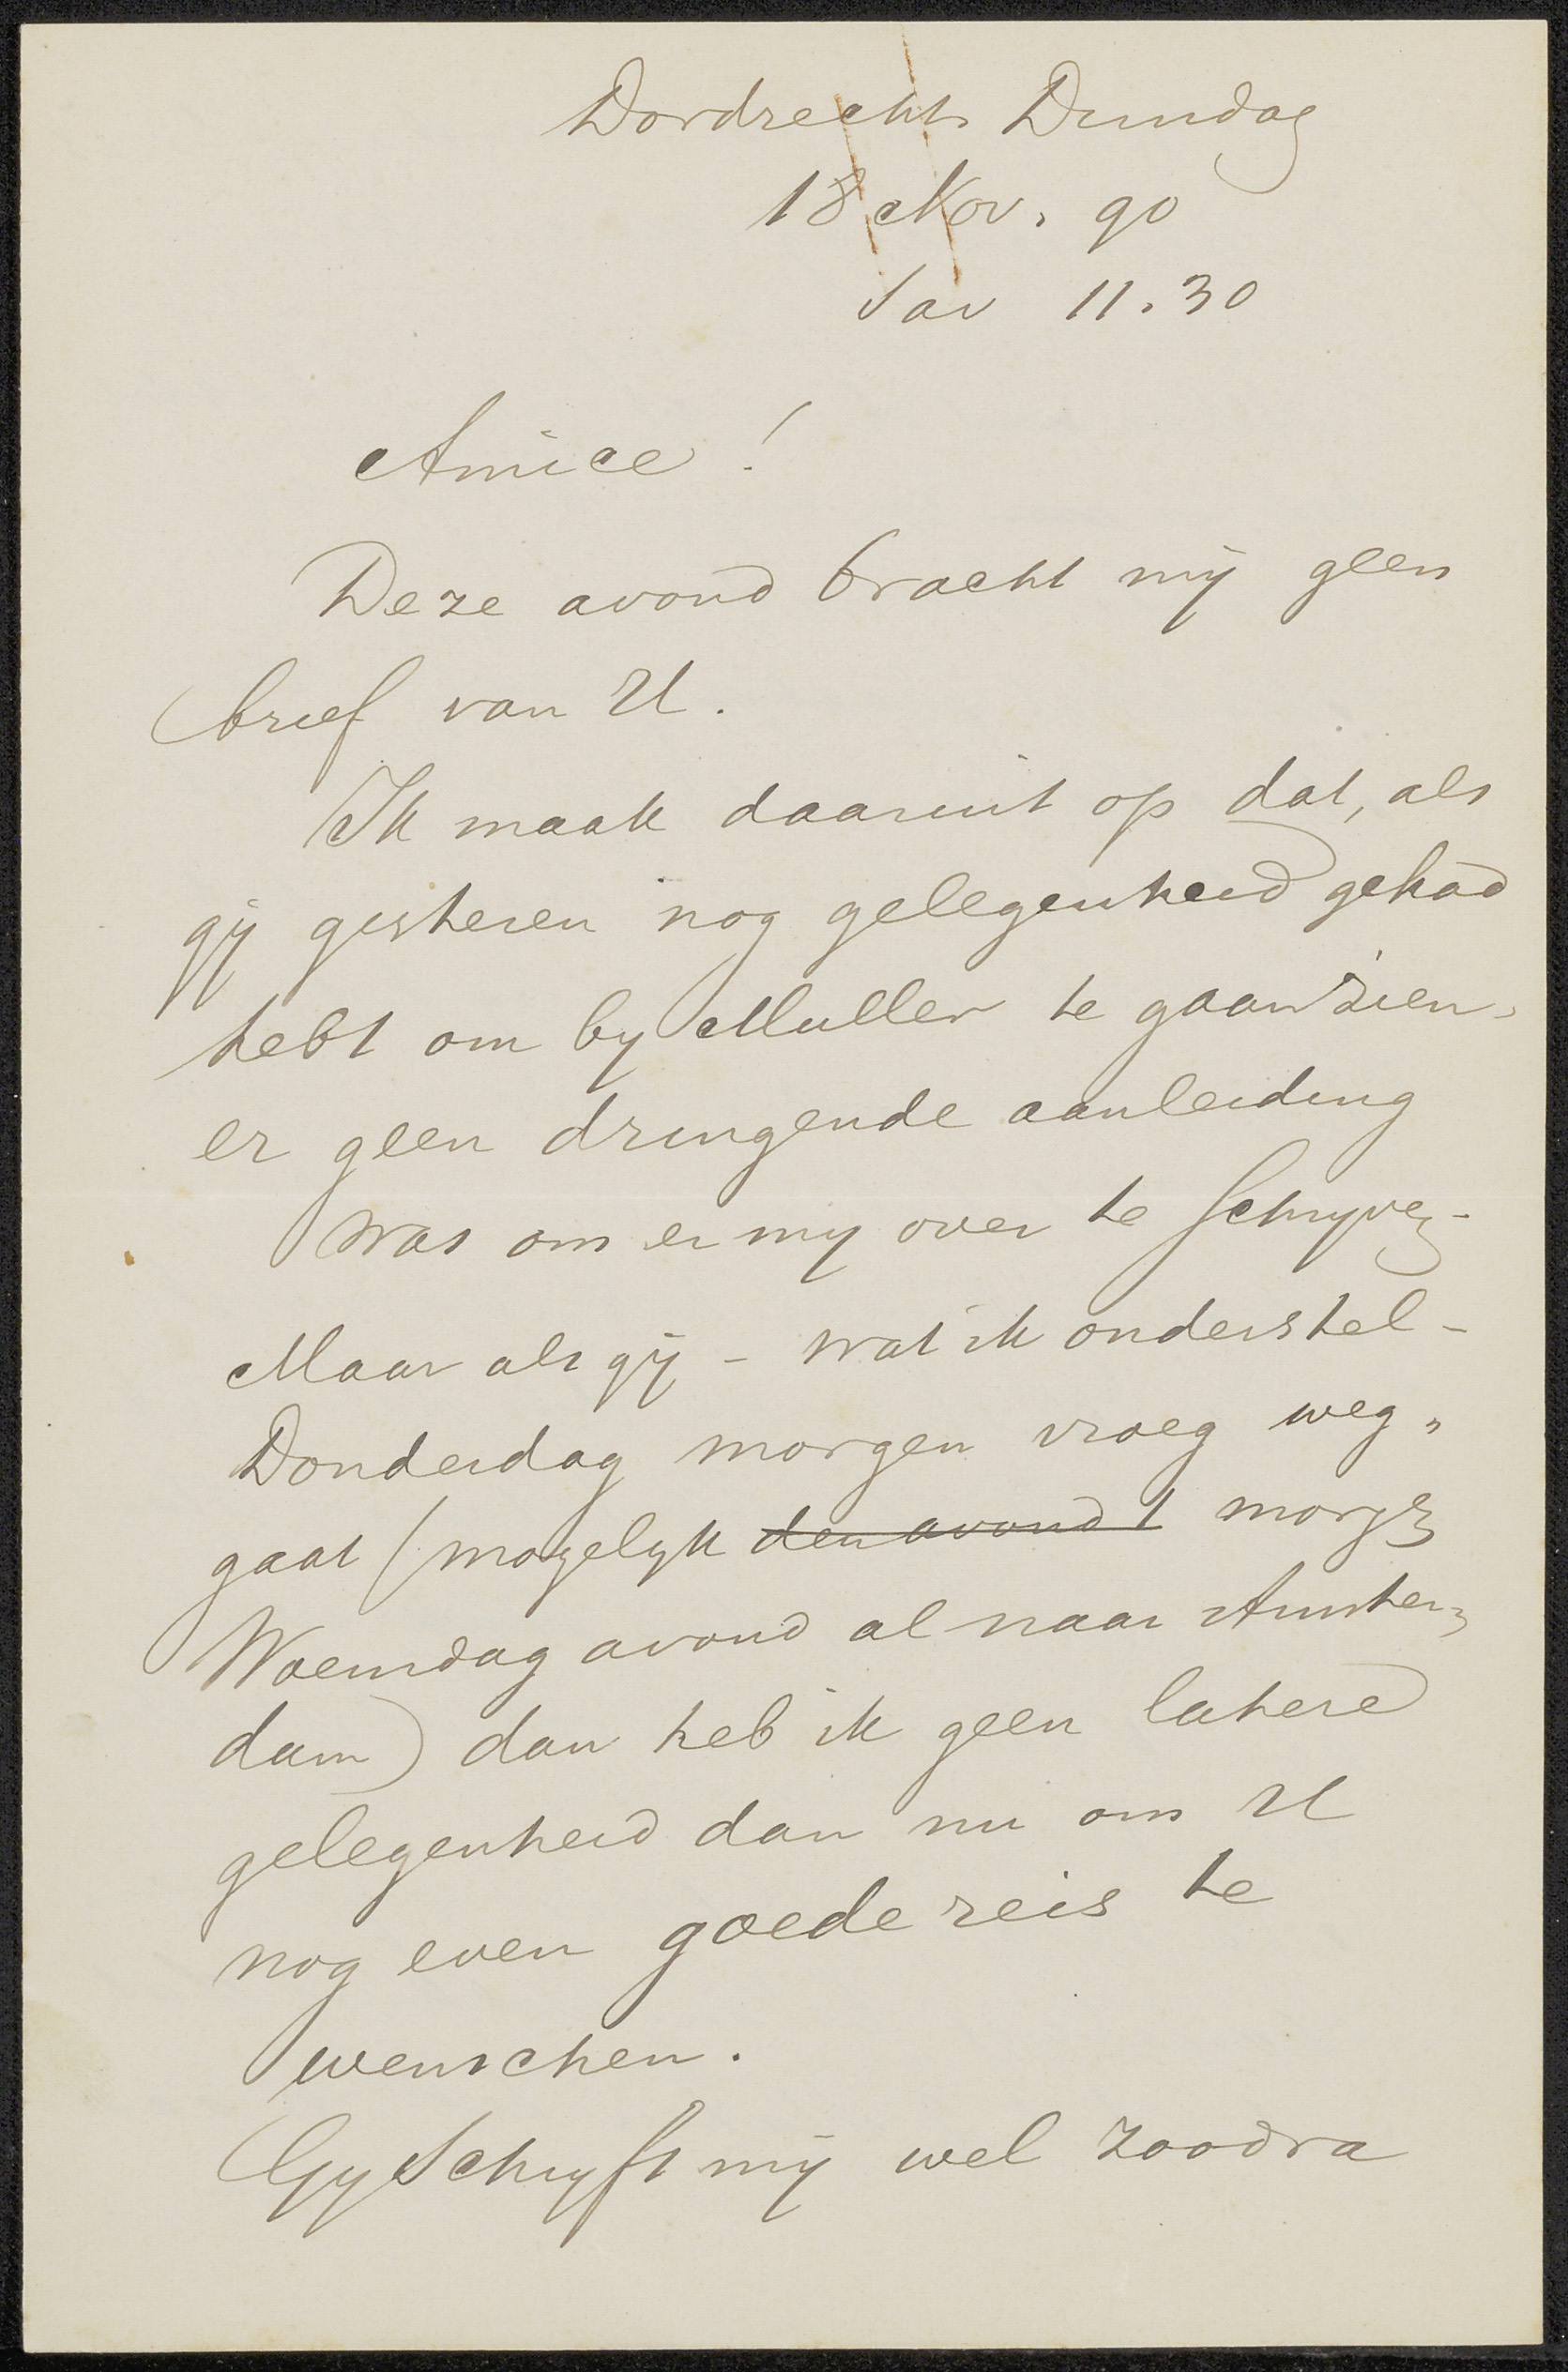 Dordrecht Dinsdag
18 Nov. 90
's av 11.30
Amice!
Deze avond bracht mij geen
brief van U.
Ik maak daaruit op dat, als
gij gisteren nog gelegenheid gehad
hebt om by Muller te gaan zien,
er geen dringende aanleiding
was om er my over te schryven-
Maar als gij - wat ik onderstel -
Donderdag morgen vroeg weg„
gaat (mogelyk den avond t morgen
Woensdag avond al naar Amster„
dam) dan heb ik geen latere
gelegenheid dan nu om U
nog even goede reis te
wenschen.
Gy schryft mij wel zoodra